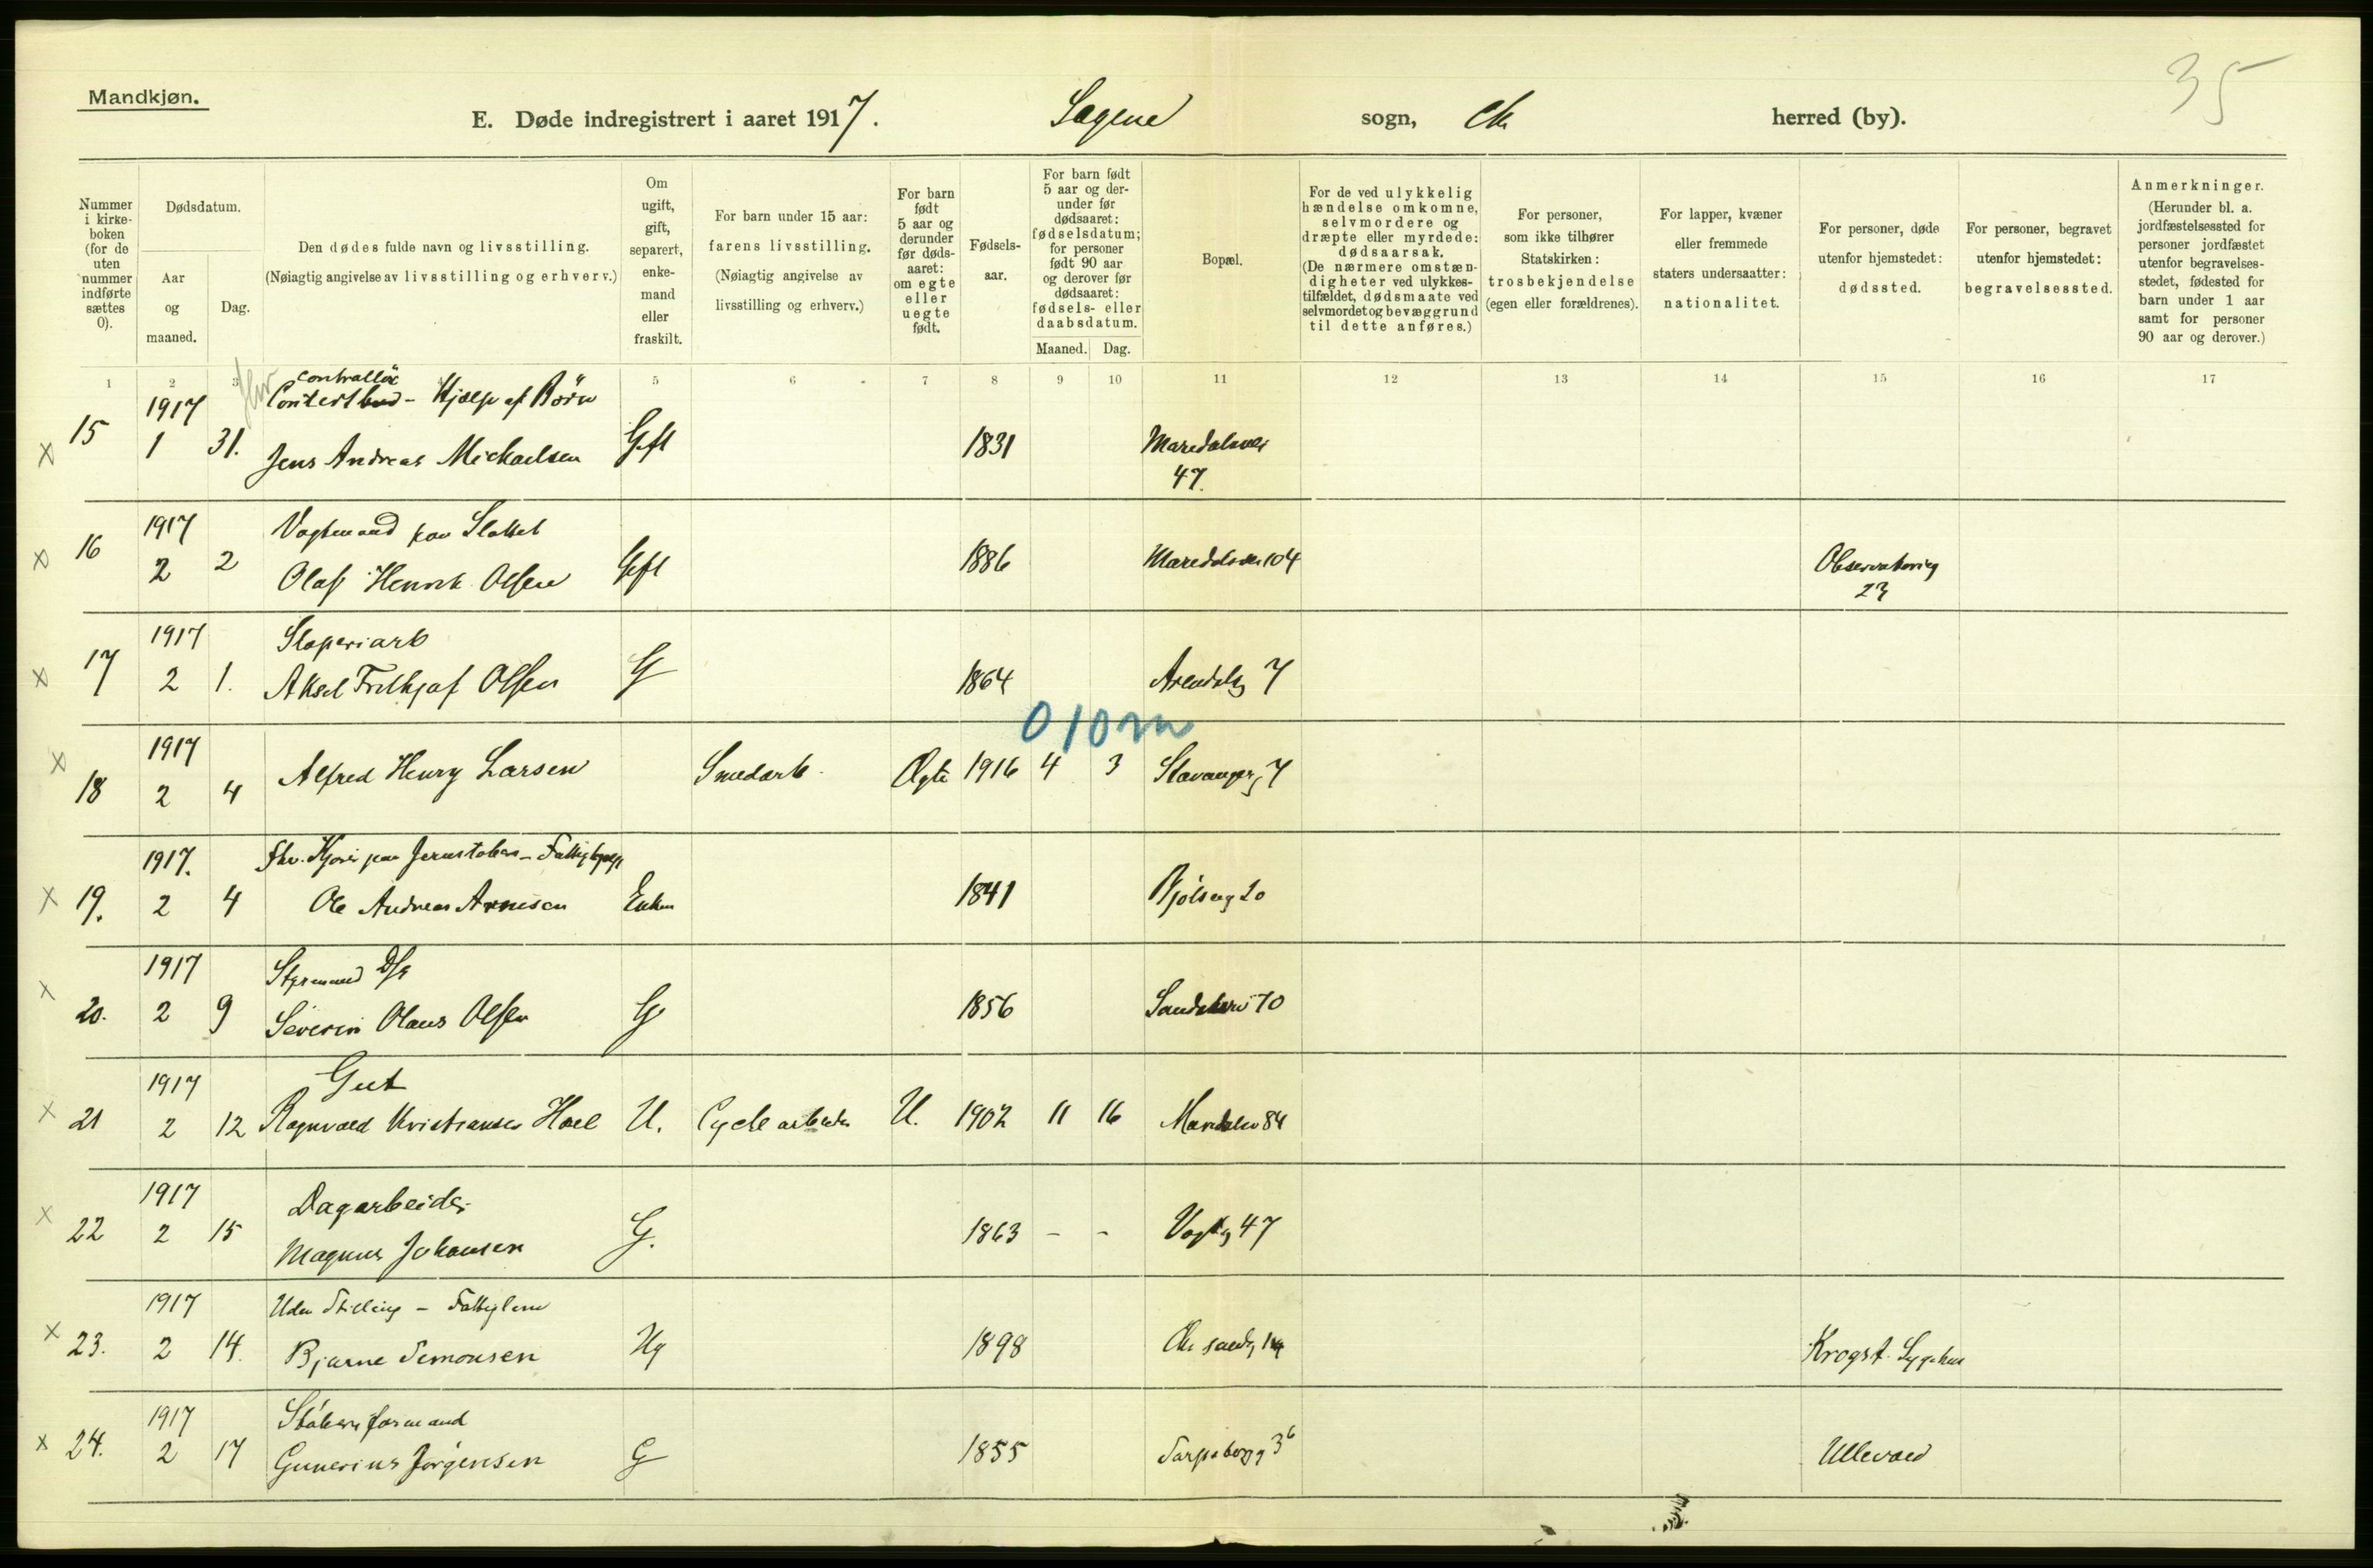 35
Mandkjøn.
E. Døde indregistrert i aaret 1917. Sagene sogn, herred (by).
Nummer i kirkeboken (for de uten nummer indførte sættes 0).
Dødsdatum.
Aar og maaned.
Dag.
Den dødes fulde navn og livsstilling.
(Nøiagtig angivelse av livsstilling og erhverv.)
Om ugift, gift, separert, enkemand eller fraskilt.
For barn under 15 aar: farens livsstilling. (Nøiagtig angivelse av livsstilling og erhverv.)
For barn født 5 aar og derunder før dødsaaret: om egte eller uegte født.
Fødselsaar.
For barn født 5 aar og derunder før dødsaaret: fødselsdatum; for personer født 90 aar og derover før dødsaaret: fødsels- eller daabsdatum.
Maaned. Dag.
Bopæl.
For de ved ulykkelig hændelse omkomne, selvmordere og dræpte eller myrdede: dødsaarsak. (De nærmere omstændigheter ved ulykkestilfældet, dødsmaate ved selvmordet og bevæggrund til dette anføres.)
For personer, som ikke tilhører Statskirken: trosbekjendelse (egen eller forældrenes).
For lapper, kvæner eller fremmede staters undersaatter: nationalitet.
For personer, døde utenfor hjemstedet: dødssted.
For personer, begravet utenfor hjemstedet: begravelsessted.
Anmerkninger. (Herunder bl. a. jordfæstelsessted for personer jordfæstet utenfor begravelsesstedet, fødested for barn under 1 aar samt for personer 90 aar og derover.)
1 2 3 5 6 7 8 9 10 11 12 13 14 15 16 17
1917 Contrallør
Hjælp af Børn
x 15 1 31. Jens Andreas Michaelsen Gift 1831 Maredalsvei
47.
1917 Vagtmand paa Slottet
x 16 2 2 Olaf Henrik Olsen Gift 1886 Maredalsvei 104 Observatorieg
23
1917
x 17 2 1. Aksel Frithjof Olsen G 1864 Arendalsg 7
0 10 m
1917
x 18 2 4 Alfred Henry Larsen Smedarb. Ægte 1916 4 3 Stavangerg 7
1917.
x 19. 2 4 Ole Andreas Arnesen Enkem 1841 Bjølseng 20
1917 Styrmand
x 20. 2 9 Severin Olaus Olsen G 1856
1917 Gut
x 21 2 12 Ragnvald Kristiansen Hoel U. Cycle arbeider U. 1902 11 16
1917 Dagarbeider
x 22 2 15 Magnus Johansen G. 1863 - - Vogtsg 47
1917 Uden Stilling - Fattiglem
x 23. 2 14. Bjarne Simonsen Ug 1898 Krogst. Sygehus
1917 Støberiformand
x 24. 2 17 Gunerius Jørgensen G 1855 Sarpsborgg 36 Ullevaal